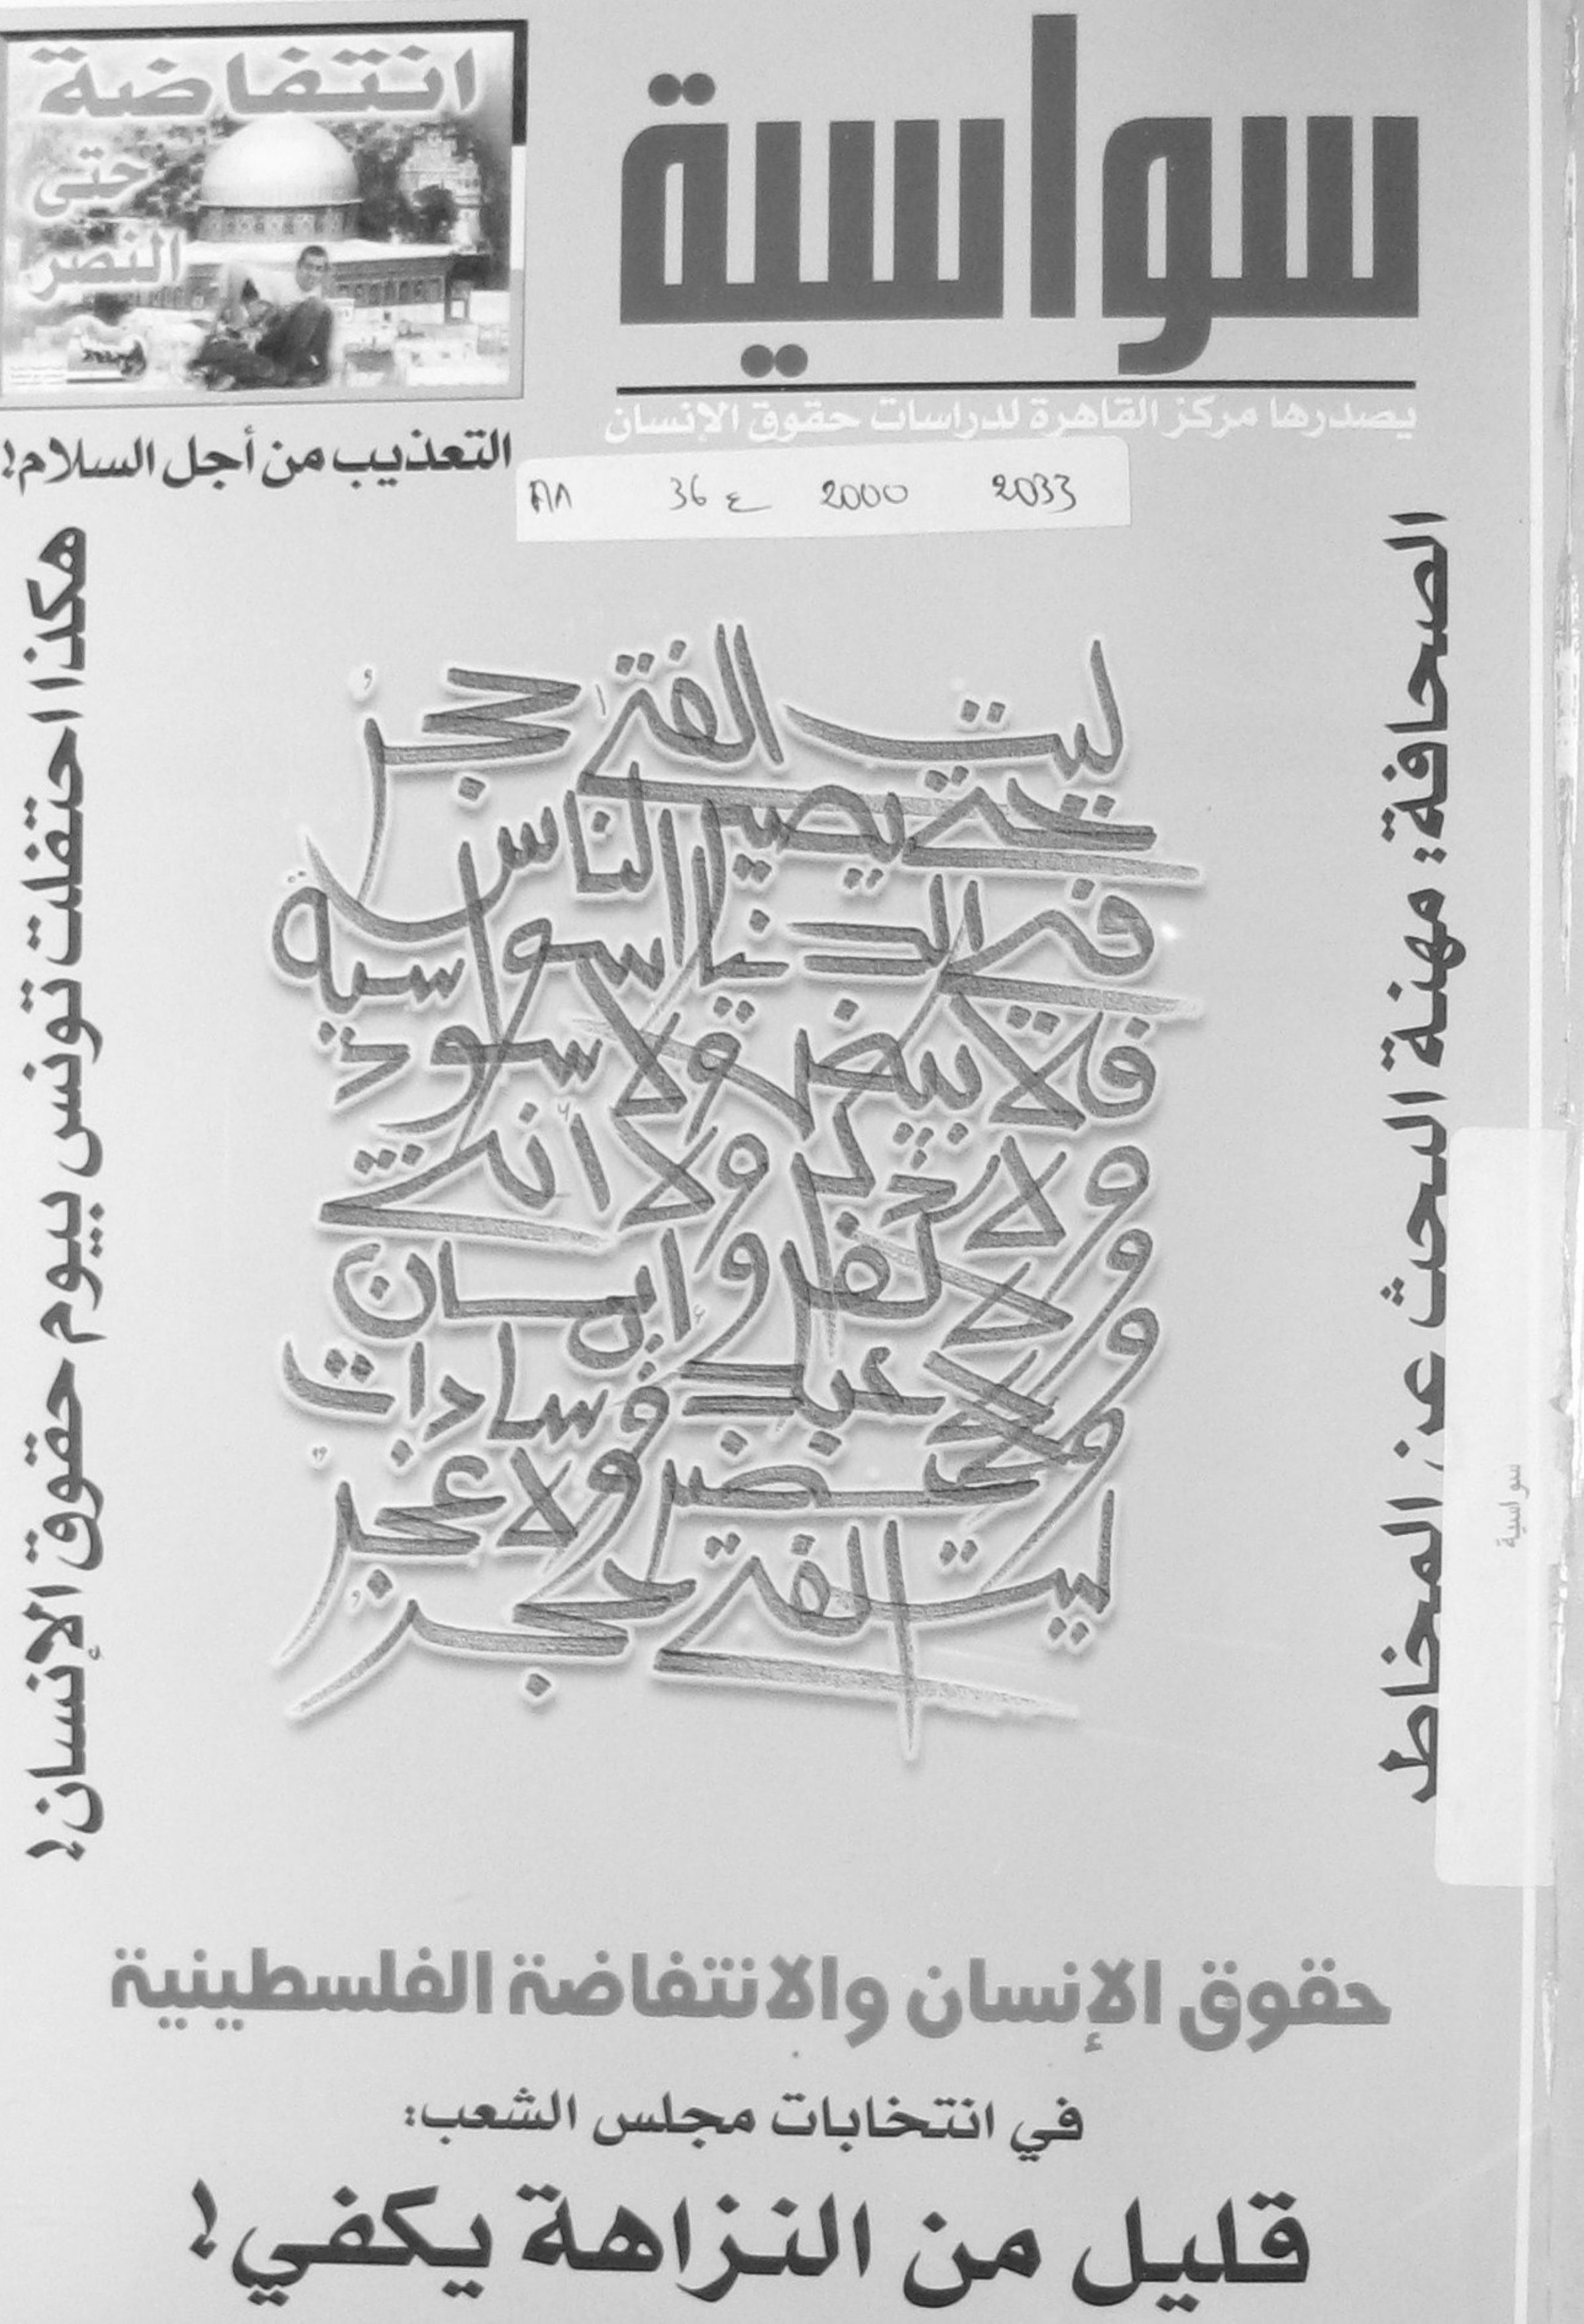 سواسية
يصدرها مركز القاهرة لدراسات حقوق الإنسان
انتفاضة
حتى
النصر
التعذيب من أجل السلام!
2033 2000 ع 36 ٨٨
الصحافة: مهنة البحث عن المخاطر
هكذا احتفلت تونس بيوم حقوق الإنسان!
ليت الفتى حجرٌ
حتى يصير الناس
في الدنيا سواسية
فلا بيض ولا سود
ولا ذكر ولا أنثى
ولا كفر وإيمان
ولا عبد وسادات
ولا خضر ولا عجرٌ
ليت الفتى حجرٌ
سواسية
حقوق الإنسان والانتفاضة الفلسطينية
في انتخابات مجلس الشعب:
قليل من النزاهة يكفي!